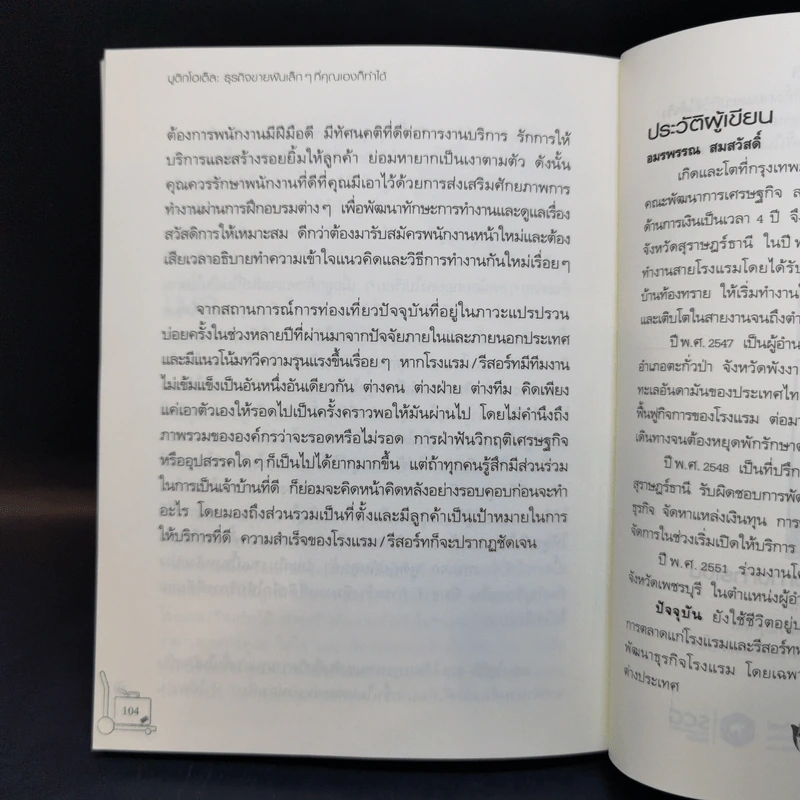 บูติกโฮเต็ล: ธุรกิจขายฝันเล็ก ๆ ที่คุณเองก็ทำได้
ต้องการพนักงานมีฝีมือดี มีทัศนคติที่ดีต่อการงานบริการ รักการให้
บริการและสร้างรอยยิ้มให้ลูกค้า ย่อมหายากเป็นเงาตามตัว ดังนั้น
คุณควรรักษาพนักงานที่ดีที่คุณมีเอาไว้ด้วยการส่งเสริมศักยภาพการ
ทำงานผ่านการฝึกอบรมต่างๆ เพื่อพัฒนาทักษะการทำงานและดูแลเรื่อง
สวัสดิการให้เหมาะสม ดีกว่าต้องมารับสมัครพนักงานหน้าใหม่และต้อง
เสียเวลาอธิบายทำความเข้าใจแนวคิดและวิธีการทำงานกันใหม่เรื่อยๆ
จากสถานการณ์การท่องเที่ยวปัจจุบันที่อยู่ในภาวะแปรปรวน
บ่อยครั้งในช่วงหลายปีที่ผ่านมาจากปัจจัยภายในและภายนอกประเทศ
และมีแนวโน้มทวีความรุนแรงขึ้นเรื่อยๆ หากโรงแรม/รีสอร์ทมีทีมงาน
ไม่เข้มแข็งเป็นอันหนึ่งอันเดียวกัน ต่างคน ต่างฝ่าย ต่างทีม คิดเพียง
แค่เอาตัวเองให้รอดไปเป็นครั้งคราวพอให้มันผ่านไป โดยไม่คำนึงถึง
ภาพรวมขององค์กรว่าจะรอดหรือไม่รอด การฝ่าฟันวิกฤติเศรษฐกิจ
หรืออุปสรรคใดๆ ก็เป็นไปได้ยากมากขึ้น แต่ถ้าทุกคนรู้สึกมีส่วนร่วม
ในการเป็นเจ้าบ้านที่ดี ก็ย่อมจะคิดหน้าคิดหลังอย่างรอบคอบก่อนจะทำ
อะไร โดยมองถึงส่วนรวมเป็นที่ตั้งและมีลูกค้าเป็นเป้าหมายในการ
ให้บริการที่ดี ความสำเร็จของโรงแรม/รีสอร์ทก็จะปรากฏชัดเจน
104
ประวัติผู้เขียน
อมรพรรณ สมสวัสดิ์
เกิดและโตที่กรุงเทพ
คณะพัฒนาการเศรษฐกิจ
ด้านการเงินเป็นเวลา 4 ปี
จังหวัดสุราษฎร์ธานี ในปี
ทำงานสายโรงแรมโดยได้รับ
บ้านท้องทราย ให้เริ่มทำงาน
และเติบโตในสายงานจนถึงตำ
ปี พ.ศ. 2547 เป็นผู้อำน
อำเภอตะกั่วป่า จังหวัดพังงา
ทะเลอันดามันของประเทศไท
ฟื้นฟูกิจการของโรงแรม ต่อมา
เดินทางจนต้องหยุดพักรักษา
ปี พ.ศ. 2548 เป็นที่ปรึก
สุราษฎร์ธานี รับผิดชอบการพัฒ
ธุรกิจ จัดหาแหล่งเงินทุน การ
จัดการในช่วงเริ่มเปิดให้บริการ
ปี พ.ศ. 2551 ร่วมงาน
จังหวัดเพชรบุรี ในตำแหน่งผู้อำ
ปัจจุบัน ยังใช้ชีวิตอยู่
การตลาดแก่โรงแรมและรีสอร์ท
พัฒนาธุรกิจโรงแรม โดยเฉพา
ต่างประเทศ